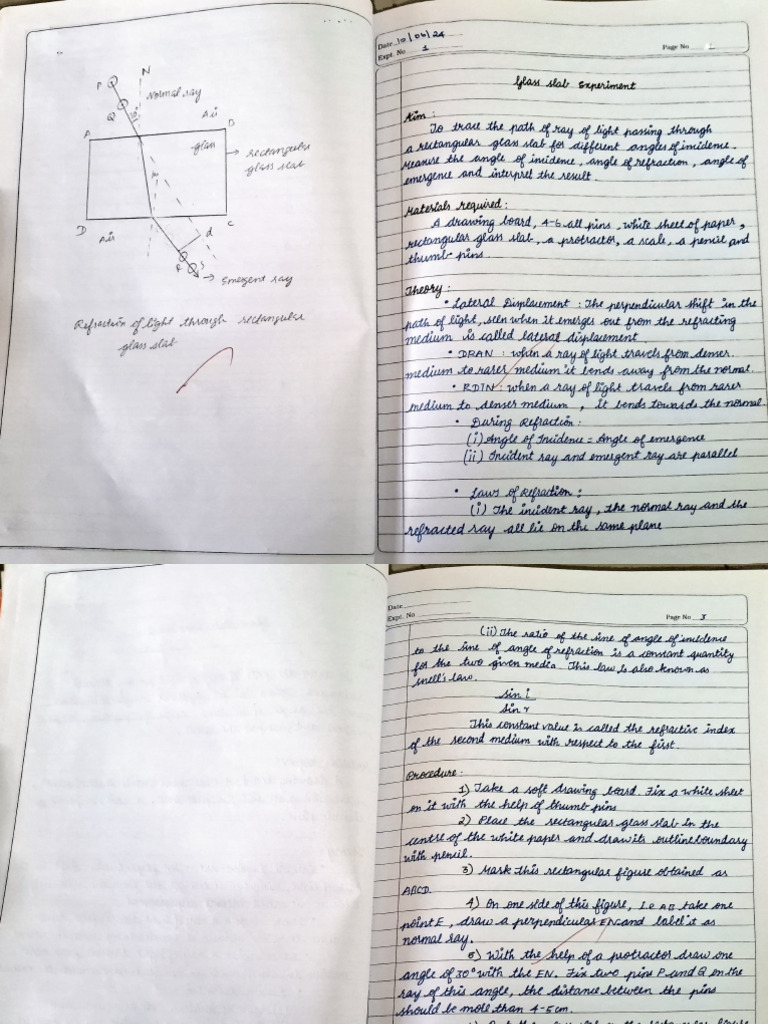 P
N
Normal ray
Q
30°
Air
A
D
glass
rectangular
glass slab
r
D
C
Air
d
R
S
Emergent ray
Refraction of light through rectangular
glass slab
Date 10/06/24
Expt. No 1
Page No 1
Glass slab Experiment
Aim :
To trace the path of ray of light passing through
a rectangular glass slab for different angles of incidence.
Measure the angle of incidence, angle of refraction, angle of
emergence and interpret the result.
Materials required :
A drawing board, 4-6 all pins, white sheet of paper,
rectangular glass slab, a protractor, a scale, a pencil and
thumb pins.
Theory :
• Lateral Displacement : The perpendicular shift in the
path of light, seen when it emerges out from the refracting
medium is called lateral displacement
• DRAN : when a ray of light travels from denser
medium to rarer medium it bends away from the normal.
• RDTN : when a ray of light travels from rarer
medium to denser medium, it bends towards the normal
• During Refraction :
(i) Angle of Incidence = Angle of emergence
(ii) Incident ray and emergent ray are parallel
• Laws of Refraction :
(i) The incident ray, the normal ray and the
refracted ray all lie on the same plane
Date
Expt. No
Page No 3
(ii) The ratio of the sine of angle of incidence
to the sine of angle of refraction is a constant quantity
for the two given media. This law is also known as
snell's law.
sin i
sin r
This constant value is called the refractive index
of the second medium with respect to the first.
Procedure :
1) Take a soft drawing board. Fix a white sheet
on it with the help of thumb pins
2) Place the rectangular glass slab in the
centre of the white paper and draw its outline boundary
with pencil.
3) Mark this rectangular figure obtained as
ABCD.
4) On one side of this figure, i.e AB take one
point E, draw a perpendicular EN and label it as
normal ray.
5) With the help of a protractor draw one
angle of 30° with the EN. Fix two pins P and Q on the
ray of this angle, the distance between the pins
should be more than 4-5cm.